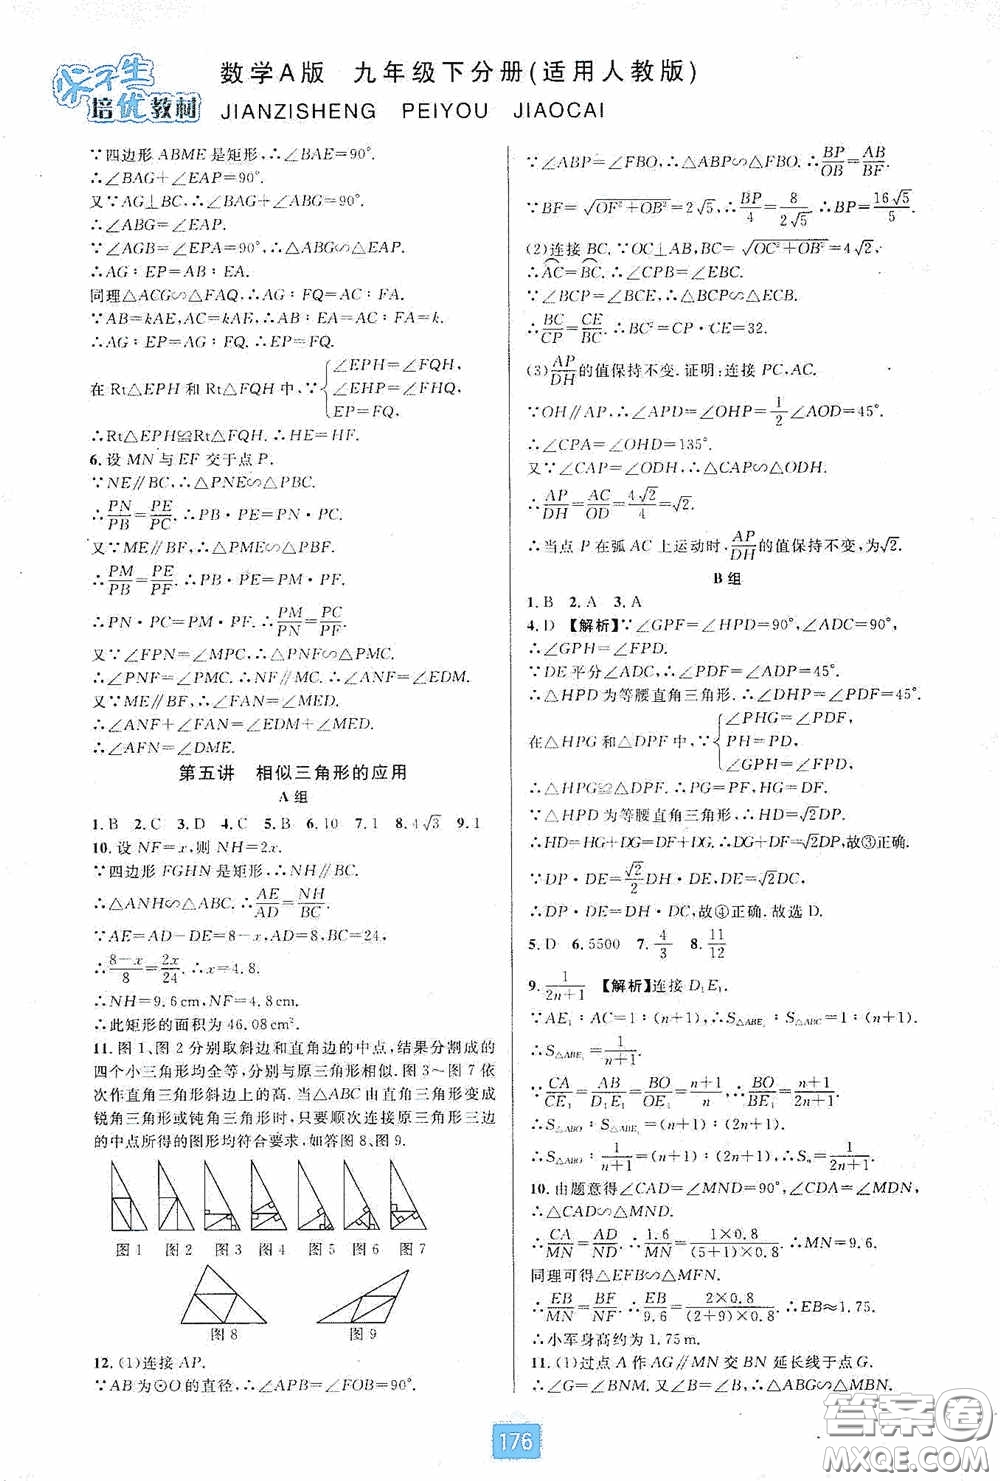 尖子生
培优教材
数学A版 九年级下分册(适用人教版)
JIANZISHENG PEIYOU JIAOCAI
∵四边形ABME是矩形,∴∠BAE=90°.
∴∠BAG+∠EAP=90°.
又∵AG⊥BC,∴∠BAG+∠ABG=90°.
∴∠ABG=∠EAP.
∵∠AGB=∠EPA=90°,∴△ABG∽△EAP.
∴AG∶EP=AB∶EA.
同理△ACG∽△FAQ,∴AG∶FQ=AC∶FA.
∵AB=kAE,AC=kAF,∴AB∶EA=AC∶FA=k.
∴AG∶EP=AG∶FQ.∴EP=FQ.
在Rt△EPH和Rt△FQH中,∵{∠EPH=∠FQH, ∠EHP=∠FHQ, EP=FQ,
∴Rt△EPH≌Rt△FQH.∴HE=HF.
6.设MN与EF交于点P.
∵NE∥BC,∴△PNE∽△PBC.
∴PN/PB=PE/PC.∴PB·PE=PN·PC.
又∵ME∥BF,∴△PME∽△PBF.
∴PM/PB=PE/PF.∴PB·PE=PM·PF.
∴PN·PC=PM·PF.∴PM/PN=PC/PF.
又∵∠FPN=∠MPC,∴△FPN∽△MPC.
∴∠PNF=∠PMC.∴NF∥MC.∴∠ANF=∠EDM.
又∵ME∥BF,∴∠FAN=∠MED.
∴∠ANF+∠FAN=∠EDM+∠MED.
∴∠AFN=∠DME.
第五讲 相似三角形的应用
A组
1.B 2.C 3.D 4.C 5.B 6.10 7.1 8.4√3 9.1
10.设NF=x,则NH=2x.
∵四边形FGHN是矩形,∴NH∥BC.
∴△ANH∽△ABC.∴AE/AD=NH/BC.
∵AE=AD-DE=8-x,AD=8,BC=24,
∴(8-x)/8=2x/24.∴x=4.8.
∴NH=9.6cm,NF=4.8cm.
∴此矩形的面积为46.08cm².
11.图1、图2分别取斜边和直角边的中点,结果分割成的
四个小三角形均全等,分别与原三角形相似.图3~图7依
次作直角三角形斜边上的高.当△ABC由直角三角形变成
锐角三角形或钝角三角形时,只要顺次连接原三角形三边
的中点所得的图形均符合要求,如答图8、图9.
图1 图2 图3 图4 图5 图6 图7
图8 图9
12.(1)连接AP.
∵AB为⊙O的直径,∴∠APB=∠FOB=90°.
∵∠ABP=∠FBO,∴△ABP∽△FBO.∴BP/OB=AB/BF.
∵BF=√(OF²+OB²)=2√5,∴BP/4=8/(2√5).∴BP=16√5/5.
(2)连接BC.∵OC⊥AB,BC=√(OC²+OB²)=4√2,
∴AC=BC.∴∠CPB=∠EBC.
∵∠BCP=∠BCE,∴△BCP∽△ECB.
∴BC/CP=CE/BC.∴BC²=CP·CE=32.
(3)AP/DH的值保持不变.证明:连接PC,AC.
∵OH∥AP,∴∠APD=∠OHP=1/2∠AOD=45°.
∴∠CPA=∠OHD=135°.
又∵∠CAP=∠ODH,∴△CAP∽△ODH.
∴AP/DH=AC/OD=4√2/4=√2.
∴当点P在弧AC上运动时,AP/DH的值保持不变,为√2.
B组
1.B 2.A 3.A
4.D 【解析】∵∠GPF=∠HPD=90°,∠ADC=90°,
∴∠GPH=∠FPD.
∵DE平分∠ADC,∴∠PDF=∠ADP=45°.
∴△HPD为等腰直角三角形.∴∠DHP=∠PDF=45°.
在△HPG和△DPF中,∵{∠PHG=∠PDF, PH=PD, ∠GPH=∠FPD,
∴△HPG≌△DPF.∴PG=PF.∴HG=DF.
∵△HPD为等腰直角三角形,∴HD=√2DP.
∴HD=HG+DG=DF+DG.∴DG+DF=√2DP,故③正确.
∵DP·DE=√2/2DH·DE,DE=√2DC,
∴DP·DE=DH·DC,故④正确.故选D.
5.D 6.5500 7.4/3 8.11/12
9.1/(2n+1) 【解析】连接D₁E₁.
∵AE₁∶AC=1∶(n+1),∴S△ABE₁∶S△ABC=1∶(n+1).
∴S△ABE₁=1/(n+1).
∵CA/CE₁=AB/D₁E₁=BO/OE₁=(n+1)/n,∴BO/BE₁=(n+1)/(2n+1).
∴S△ABO∶S△ABE₁=(n+1)∶(2n+1).
∴S△ABO∶1/(n+1)=(n+1)∶(2n+1).∴Sₙ=1/(2n+1).
10.由题意得∠CAD=∠MND=90°,∠CDA=∠MDN.
∴△CAD∽△MND.
∴CA/MN=AD/ND.∴1.6/MN=(1×0.8)/((5+1)×0.8).∴MN=9.6.
同理可得△EFB∽△MFN.
∴EB/MN=BF/NF.∴EB/9.6=(2×0.8)/((2+9)×0.8).∴EB≈1.75.
∴小军身高约为1.75m.
11.(1)过点A作AG∥MN交BN延长线于点G.
∴∠G=∠BNM.又∵∠B=∠B,∴△ABG∽△MBN.
176
答案圈
MXQE.COM